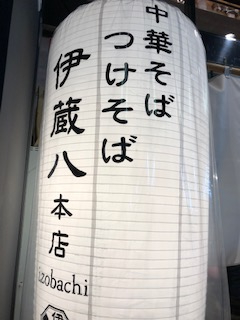 中華そば
つけそば
伊蔵八本店
izobachi
伊